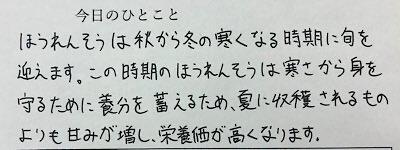 今日のひとこと
ほうれんそうは秋から冬の寒くなる時期に旬を
迎えます。この時期のほうれんそうは寒さから身を
守るために養分を蓄えるため、夏に収穫されるもの
よりも甘みが増し、栄養価が高くなります。